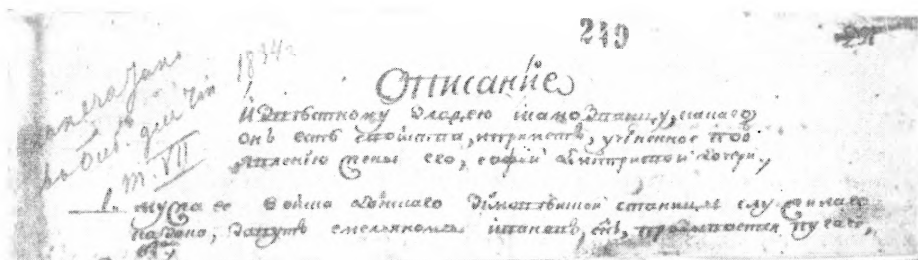 249
1834 г
напечатано
въ Биб. для Чт.
т. VII
Описание
Известному злодею и самозванцу, какаго
онъ есть свойства, и приметъ, учиненное по объ
явлению жены его, Софьи Дмитриевой дочери,
1. мужа ее войска Донскаго Зимовейской станицы служилаго
казака, зовутъ Емельяномъ Ивановъ, сынъ, прозывается Пугачъ,